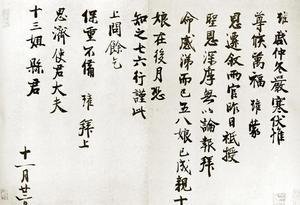 琦啟仲冬嚴寒伏惟
尊候萬福 琦蒙
恩遷敘而官昨日祗授
聖恩深厚無以論報拜
命感涕而已五八娘已成親十
娘在後月悉
知之七六行謹此
上聞餘乞
保重不備 琦拜上
恩濟使君大夫
十三姐縣君
十一月廿三